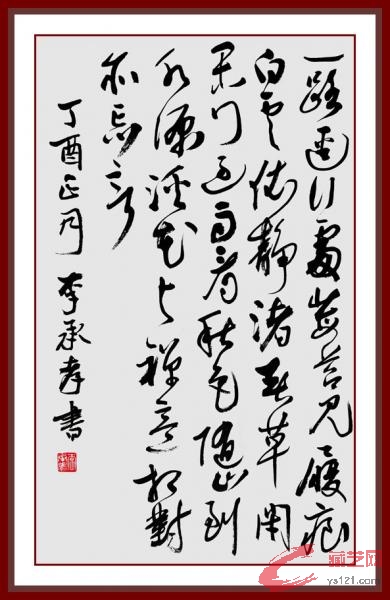 一路经行处莓苔见履痕
白云依静渚春草闭
闲门过雨看松色随山到
水源溪花与禅意相对
亦忘言
丁酉正月 李承孝书
藏艺网
ys121.com